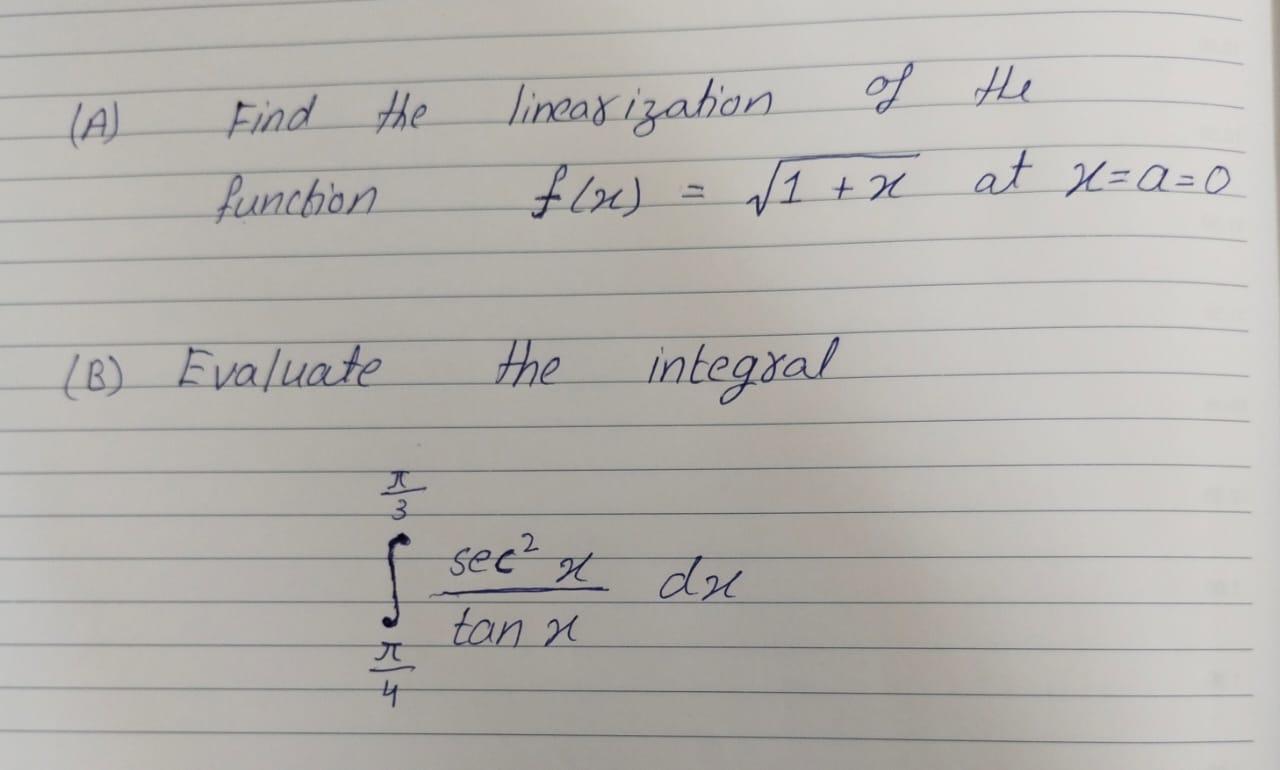 (A) Find the linearization of the
function f(x) = √1 + x at x=a=0
(B) Evaluate the integral
π/3
∫ sec² x / tan x dx
π/4